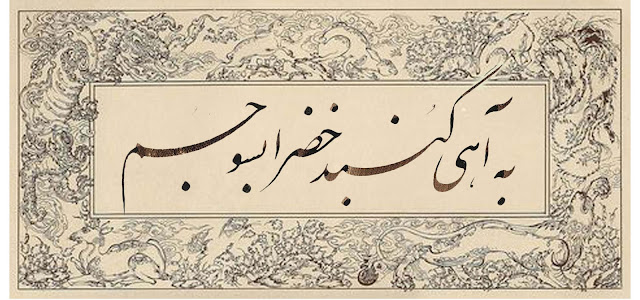 به آهی گنبد خضرا بسوجم